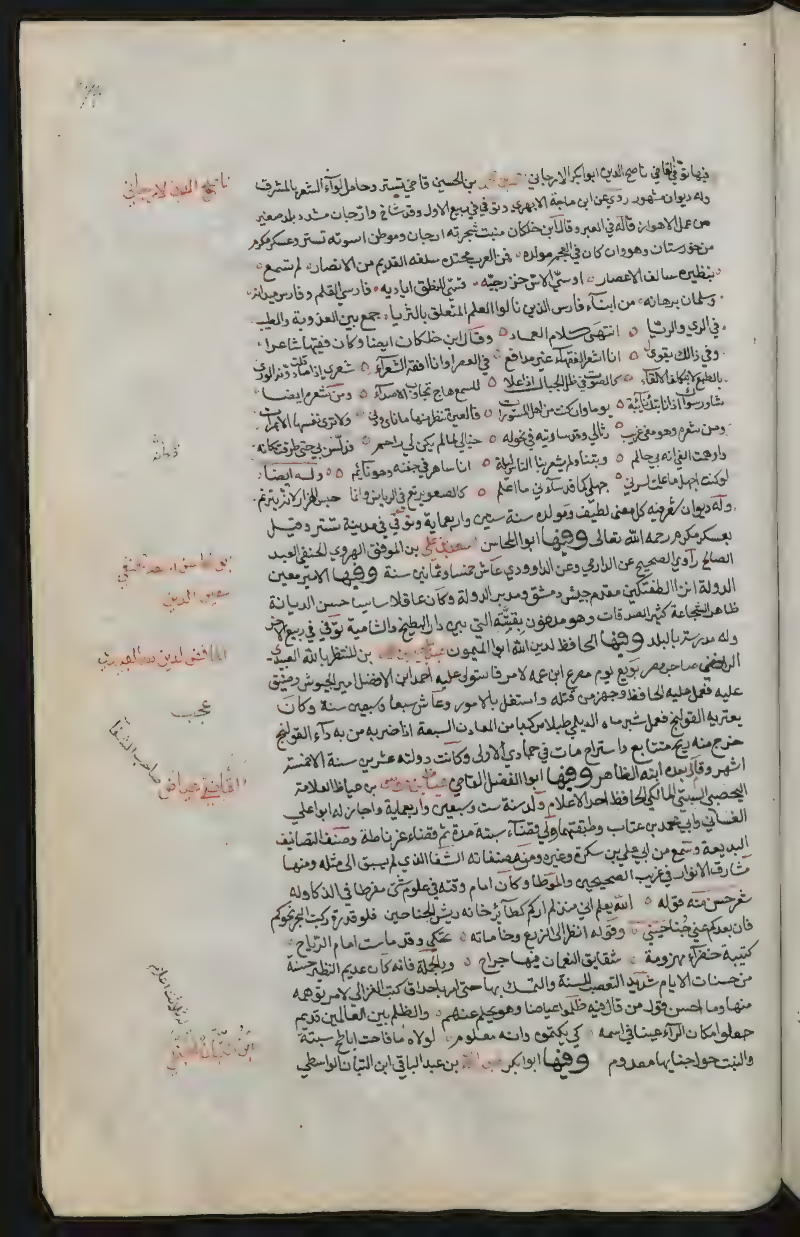 فيها توفي القاضي ناصح الدين ابو بكر الارجاني بن الحسين قاضي تستر وحامل لوآء الشعر بالمشرق
وله ديوان مشهور روى عن ابن ماجة الابهري وتوفي في ربيع الاول وقد شاخ وارجان مشدد بلد صغير
من عمل الاهواز قاله في العبر وقال ابن خلكان منبت شجرته ارجان وموطن اسرته تستر وعسكر مكرم
من خوزستان وهو وان كان في العجم مولده فمن العرب محتده سلفه القديم من الانصار لم تسمح
بنظيره سالف الاعصار اوسيّ الاس خزرجيّه قسّيّ النطق اياديه فارسي القلم وفارس ميدانه
وسلمان برهانه من ابنآء فارس الذين نالوا العلم المتعلق بالثريا جمع بين العذوبة والطيب
في الري والريا انتهى كلام العماد وقال ابن خلكان ايضا وكان فقيها شاعرا
وفي ذالك يقول انا اشعر الفقهآء غير مدافع في العصر وانا افقه الشعرآء شعري اذا ما قلت دونه الورى
بالطبع لا بتكلف الالقآء كالصوت في ظل الجبال اذا علا للسمع هاج تجاوب الاصدآء ومن شعره ايضا
شاور سواك اذا نابتك نآئبة يوما وان كنت من اهل المشورات فالعين تنظر منها ما نأى ودنى ولا ترى نفسها الا بمرآت
ومن شعره وهو معنى غريب رثالي وقد ساويته في نحوله خيالي لما لم يكن لي راحم فدلّس بي حتى طرقت مكانه
واوهمت الفي انه بي حالم وبتنا ولم يشعر بنا الناس ليلة انا ساهر في جفنه وهو نآئم وله ايضا
لو كنت اجهل ما علمت لسرني جهلي كما قد سآءني ما اعلم كالصعو يرتع في الرياض وانما حبس الهزار لانه يترنم
وله ديوان شعر فيه كل معنى لطيف ومولده سنة ستين واربعماية وتوفي في مدينة تستر وقيل
بعسكر مكرم رحمه الله تعالى وفيها ابو المحاسن اسعد بن علي بن الموفق الهروي الحنفي العبد
الصالح راوي الصحيح عن الدارمي وعن الداوودي عاش خمسا وثمانين سنة وفيها الامير معين
الدولة انر الطغتكين مقدم جيش دمشق ومدبر الدولة وكان عاقلا سايسا حسن الديانة
ظاهر الشجاعة كثير الصدقات وهو مدفون بقبّته التي بين دار البطيخ والشامية توفي في ربيع الاخر
وله مدرسة بالبلد وفيها الحافظ لدين الله ابو الميمون بن المنتظر بالله العبيدي
الرافضي صاحب مصر بويع يوم مصرع ابن عمه الامر فاستولى عليه احمد ابن الافضل امير الجيوش وضيق
عليه فعمل عليه الحافظ وجهز من قتله واستقل بالامور وعاش سبعا وسبعين سنة وكان
يعتريه القولنج فعمل شيرماه الديلمي طبلا مركبا من المعادن السبعة اذا ضربه من به دآء القولنج
خرج منه ريح متتابع واستراح مات في جمادي الاولى وكانت دولته عشرين سنة الا خمسة
اشهر وقام بعده ابنه الظاهر وفيها ابو الفضل القاضي عياض بن موسى بن عياض العلامة
اليحصبي السبتي المالكي الحافظ احد الاعلام ولد سنة ست وسبعين واربعماية واجاز له ابو علي
الغساني وابي محمد بن عتاب وطبقتهما ولي قضآء سبتة مدة ثم قضاء غرناطة وصنف التصانيف
البديعة وسمع من ابي علي بن سكرة وغيره ومن مصنفاته الشفا الذي لم يسبق الى مثله ومنها
مشارق الانوار في غريب الصحيحين والموطا وكان امام وقته في علوم شتى مفرطا في الذكا وله
شعر حسن منه قوله الله يعلم اني منذ لم اركم كطآئر خانه ريش الجناحين فلو قدرت ركبت البحر نحوكم
فان بعدكم عني جنا حيني وقوله انظر الى الزرع وخاماته تحكي وقد ماست امام الرياح
كتيبة خضرآء مهزومة شقايق النعمان فيها جراح وبالجملة فانه كان عديم النظير حسنة
من حسنات الايام شديد التعصب للسنة والتمسك بها حتى امر باحراق كتب الغزالي لامر توهمه
منها وما احسن قول من قال فيه ظلموا عياضا وهو يحلم عنهم والظلم بين العالمين قديم
جعلوا مكان الرآء عينا في اسمه كي يكتموه وانه معلوم لولاه ما فاحت اباطح سبتة
والنبت حول خبايها معدوم وفيها ابو بكر بن عبد الباقي ابن التبان الواسطي
ناصح الدين الارجاني
معين الدين
الحافظ لدين الله العبيدي
عجب
صاحب الشفا
القاضي عياض
ابن التبان